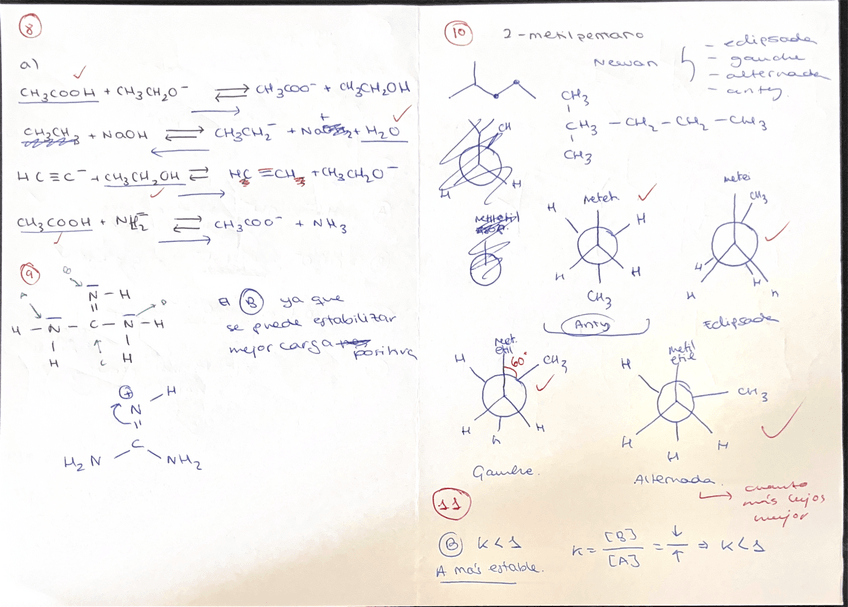 8
a)
CH3COOH + CH3CH2O⁻ ⇌ CH3COO⁻ + CH3CH2OH
CH3CH3 + NaOH ⇌ CH3CH2⁻ + Na⁺ + H2O
HC≡C⁻ + CH3CH2OH ⇌ HC≡CH + CH3CH2O⁻
CH3COOH + NH2⁻ ⇌ CH3COO⁻ + NH3
9
A
B
N - H
H - N - C - N - H
D
H
H
C
B ya que
se puede estabilizar
mejor carga
positiva
+
N
H
C
H2N
NH2
10
2-metilpemaro
Newan
- eclipsada
- gauche
- alternada
- anty
CH3
CH3 - CH2 - CH2 - CH3
CH3
CH
H
H
meteh
H
H
H
H
CH3
Anty
meter
CH3
H
H
H
h
Eclipsada
Met.
etil
60°
H
CH3
H
H
h
Gauhe.
metil
etil
H
CH3
H
H
H
Alternada
cuanto
más lejos
mejor
11
B K<1
K = [B] / [A] = ↓ / ↑ ⇒ K<1
A más estable.